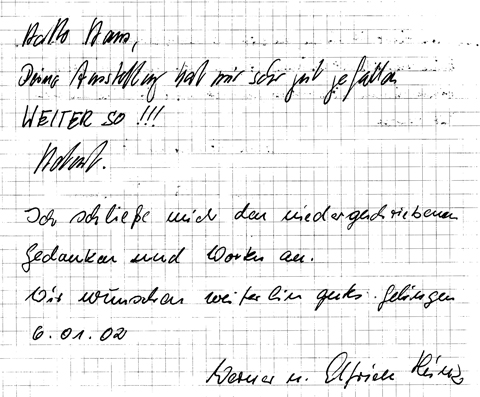 Hallo Hans,
Deine Ausstellung hat mir sehr gut gefallen
WEITER SO !!!
Ich schließe mich den niedergeschriebenen
Gedanken und Worten an.
Wir wünschen weiterhin gutes Gelingen
6.01.02
Werner u. Elfriede